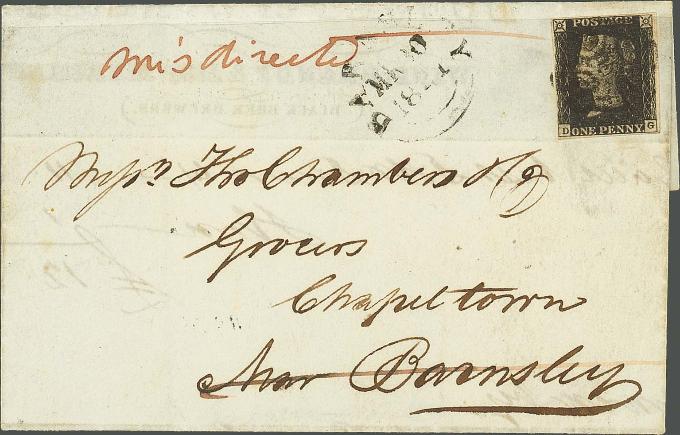 misdirected
MR 30
1841
POSTAGE
D ONE PENNY G
Messrs Tho Chambers & Co
Grocers
Chapeltown
Near Barnsley